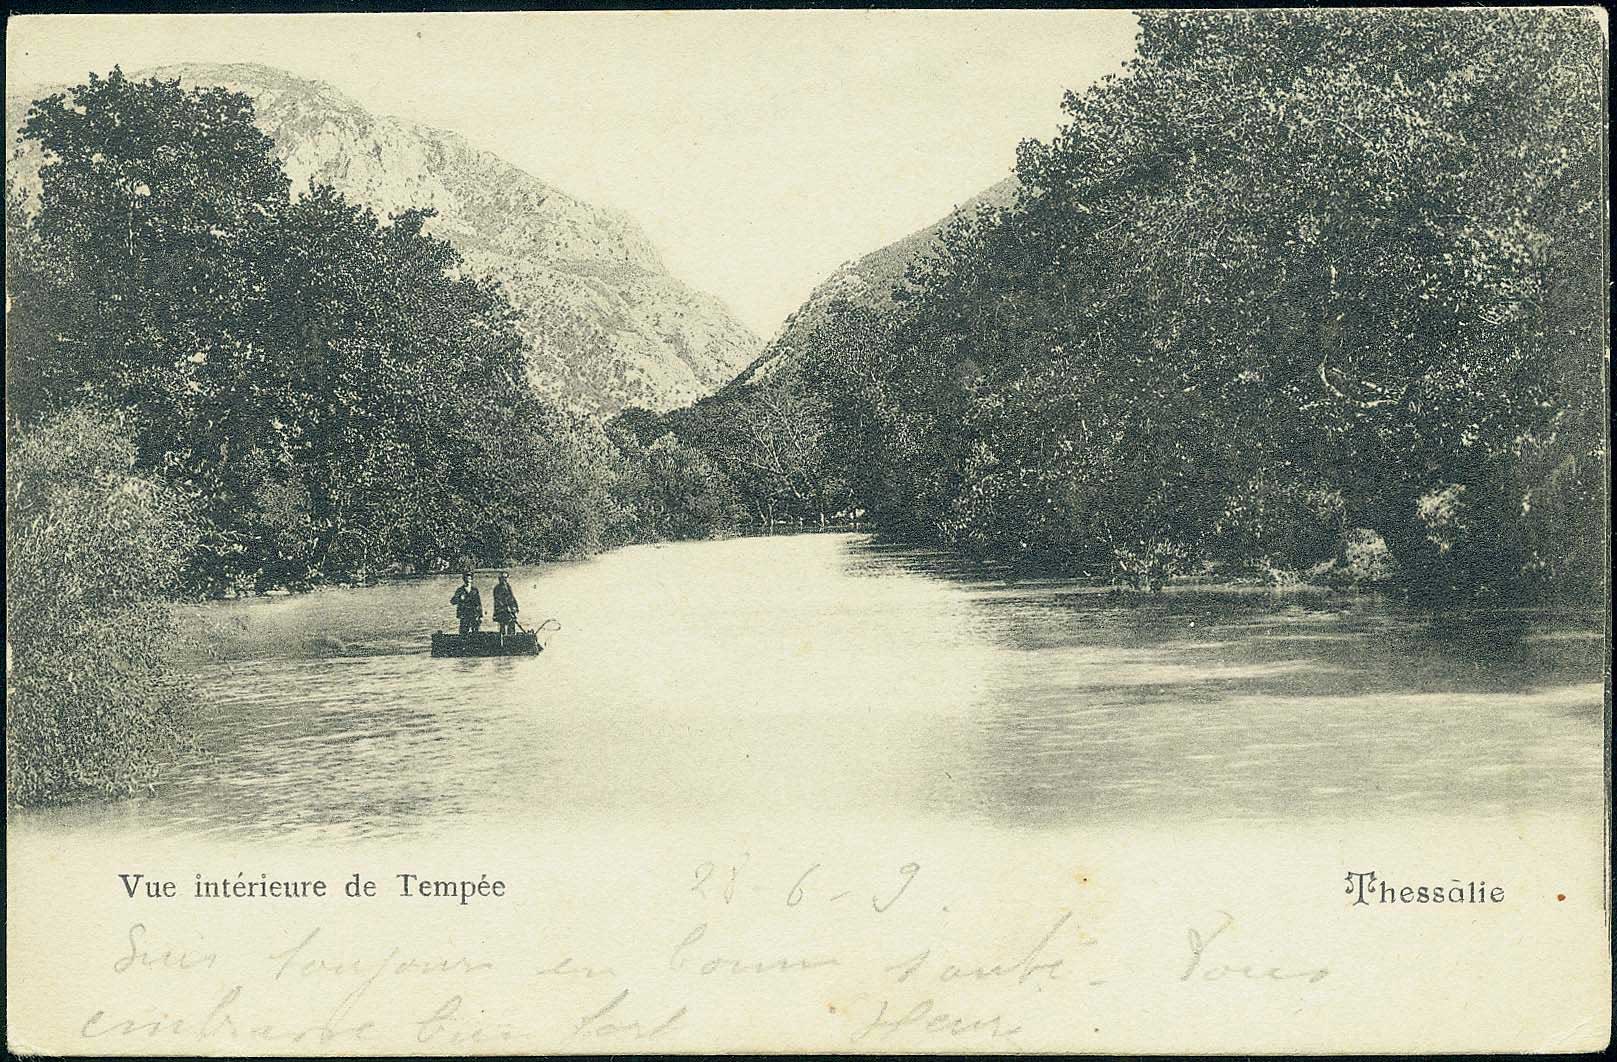 Vue intérieure de Tempée
Thessàlie
28-6-9.
Suis toujours en bonne santé. Vous
embrasse bien fort